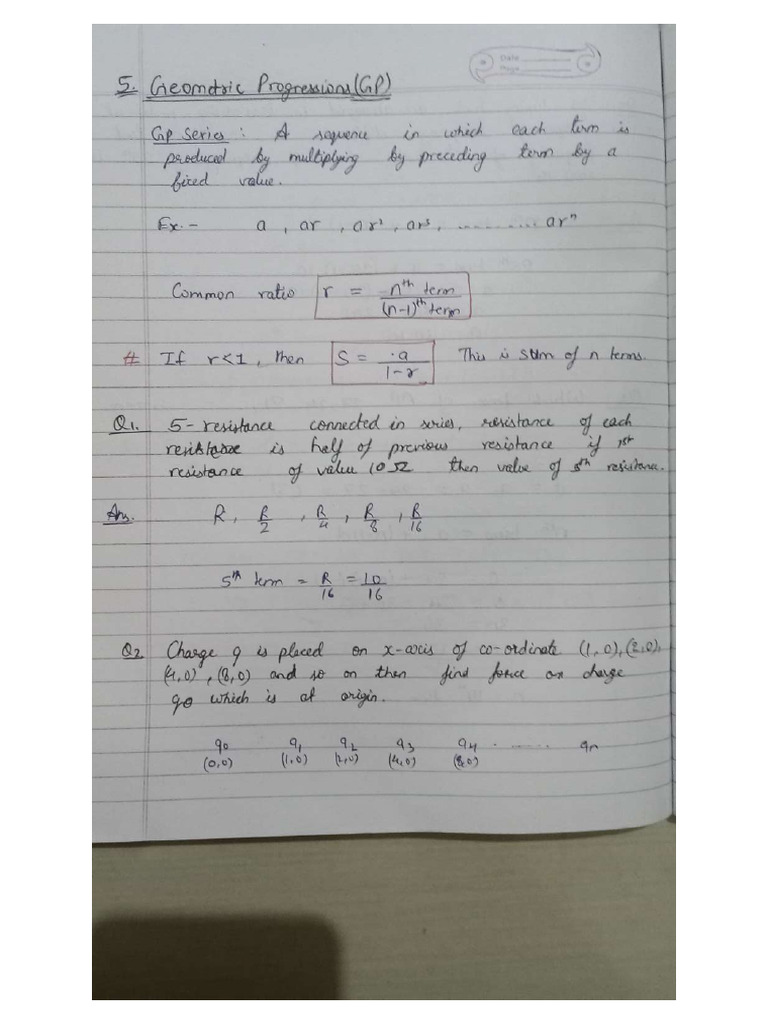 Date
Page
5. Geometric Progressions(GP)
GP series : A sequence in which each term is
produced by multiplying by preceding term by a
fixed value.
Ex. - a , ar , ar² , ar³ , .......... arⁿ
Common ratio r = nᵗʰ term / (n-1)ᵗʰ term
# If r<1 , then S = a / 1-r This is sum of n terms.
Q1. 5-resistance connected in series, resistance of each
resistance is half of previous resistance if 1st
resistance of value 10Ω then value of 5th resistance.
Ans. R , R/2 , R/4 , R/8 , R/16
5th term = R/16 = 10/16
Q2 Charge q is placed on x-axis of co-ordinate (1,0),(2,0),
(4,0) , (8,0) and so on then find force on charge
q0 which is at origin.
q0 q1 q2 q3 q4 ........ qn
(0,0) (1,0) (2,0) (4,0) (8,0)